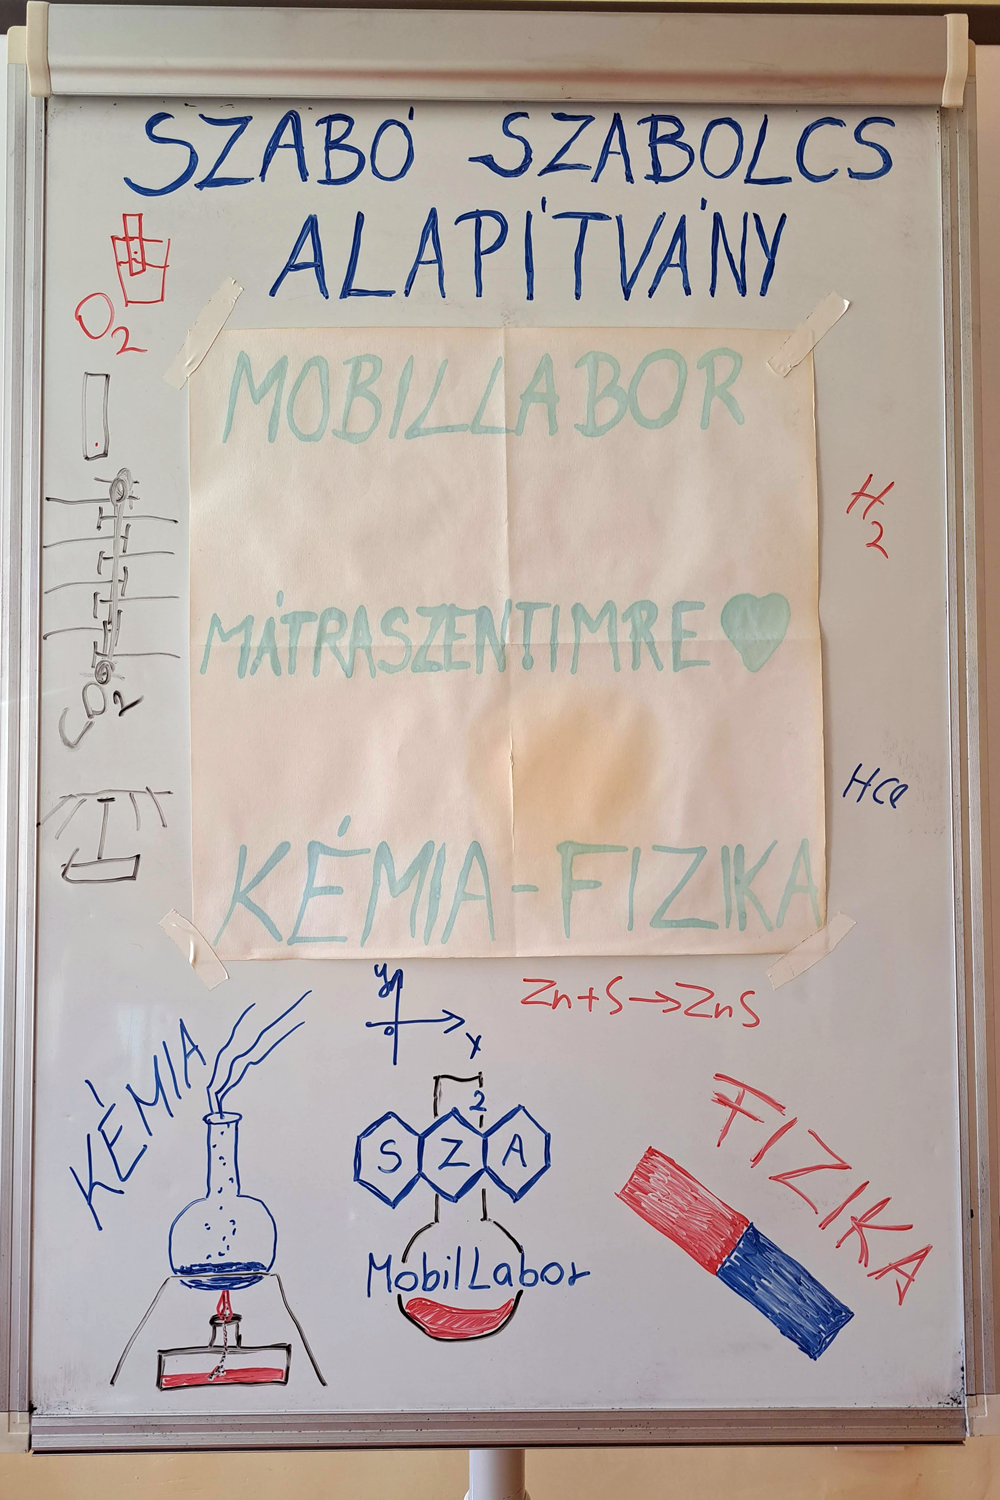 SZABÓ SZABOLCS
ALAPÍTVÁNY
O2
MOBILLABOR
H2
MÁTRASZENTIMRE
CO2
HCl
KÉMIA-FIZIKA
y
0
x
Zn+S→ZnS
KÉMIA
FIZIKA
2
S Z A
MobilLabor